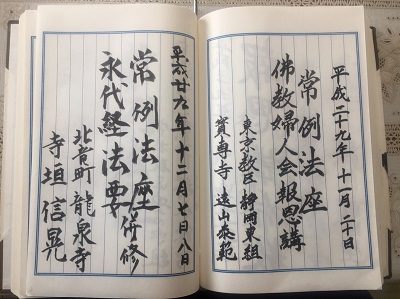 平成二十九年十一月二十日
常例法座
佛教婦人会報恩講
東京教区静岡東組
寳専寺 遠山泰範
平成廿九年十二月七日八日
常例法座併修
永代経法要
北貴町龍泉寺
寺垣信晃